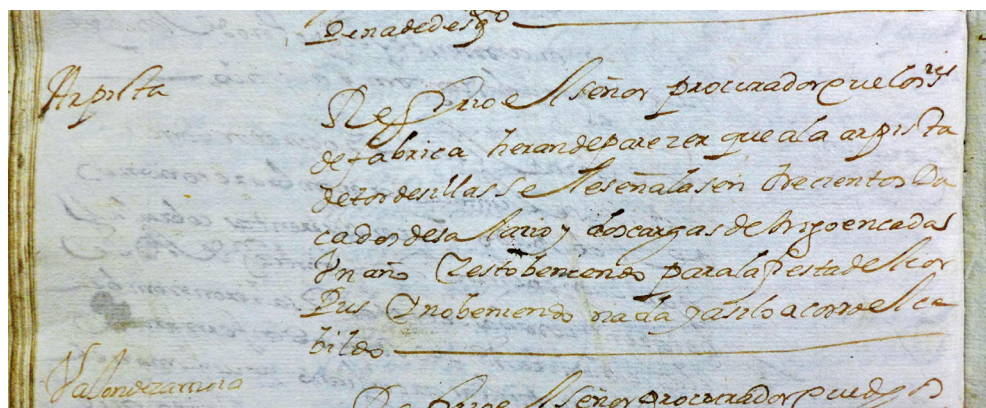 Pena de desgdo
Arpista
Refirio el señor procurador que los res
de fabrica heran de parezer que al arpista
de tordesillas se le señalasen trecientos du
cados de salario y dos cargas de trigo en cada
Un año Y esto beniendo para la fiesta del cor
pus Y no beniendo nada y asi lo acordo el ca
bildo
Refirio el señor procurador que